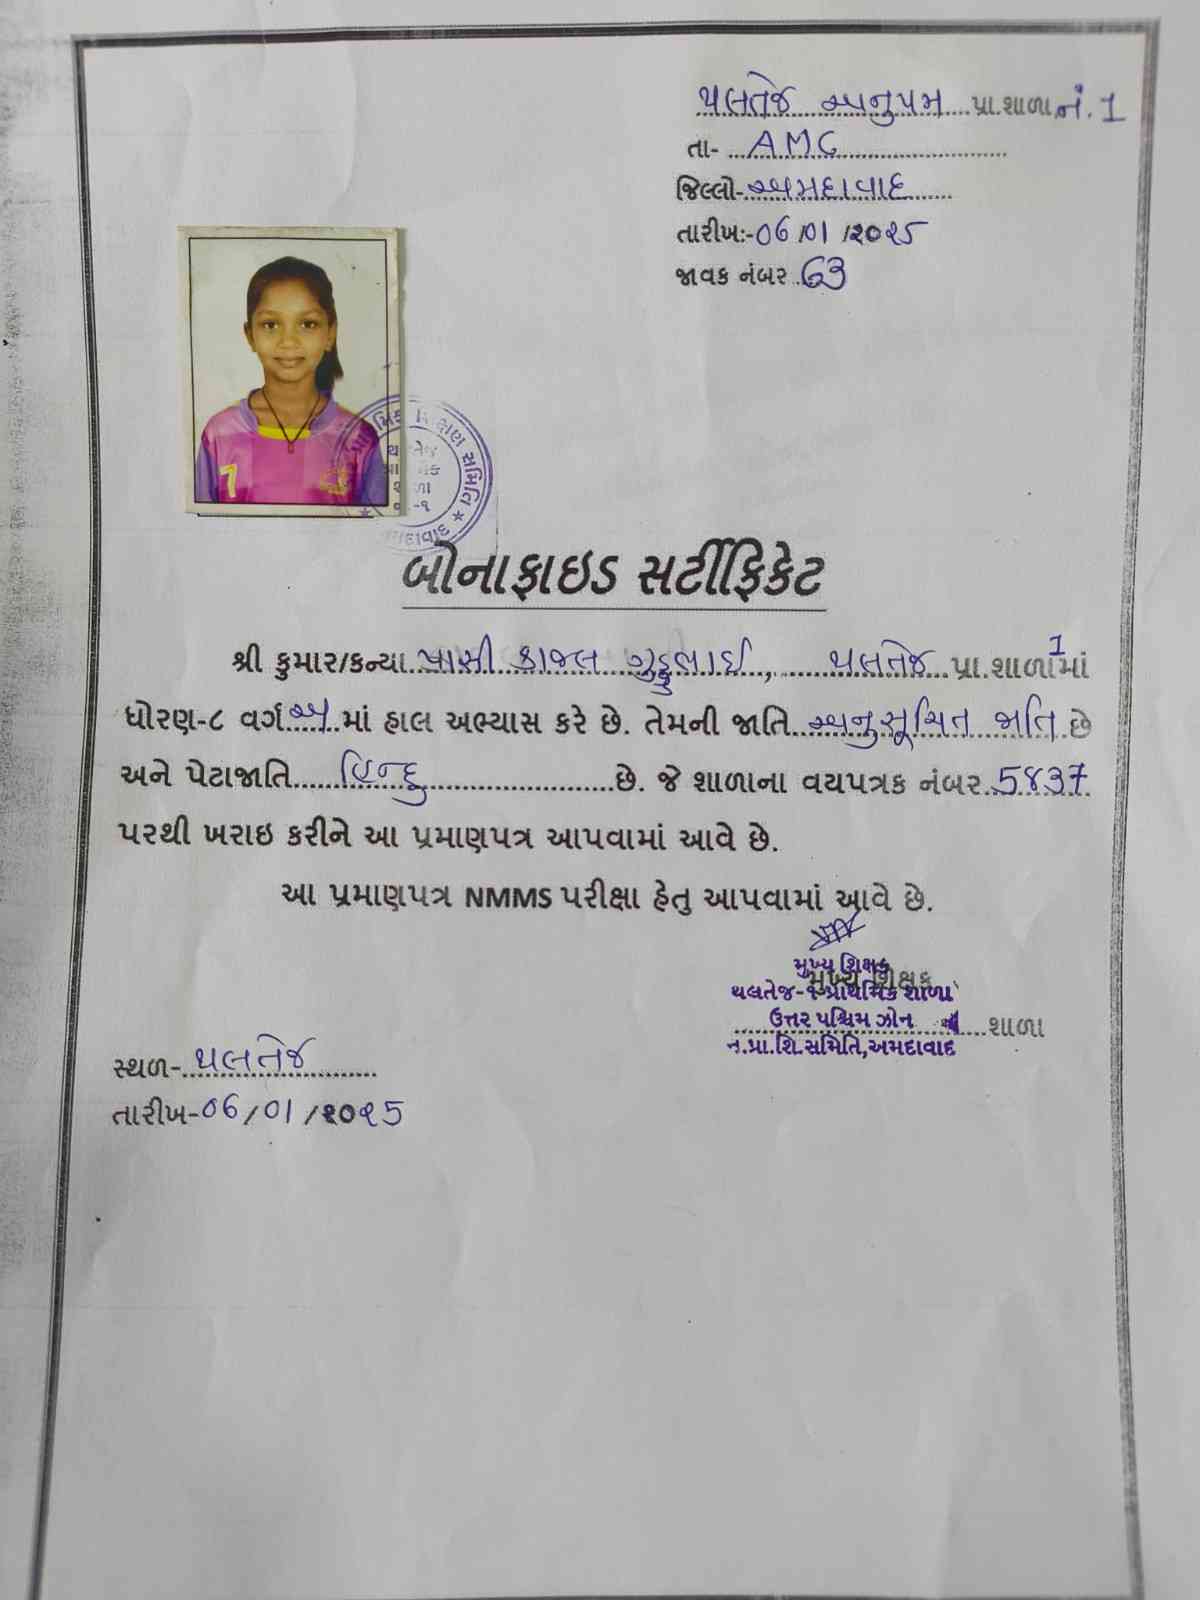 થલતેજ અનુપમ પ્રા.શાળા નં. 1
તા- AMC
જિલ્લો- અમદાવાદ
તારીખ:- 06/01/૨૦૨૫
જાવક નંબર 63
7
થલતેજ
બોનાફાઇડ સર્ટીફિકેટ
શ્રી કુમાર/કન્યા પાસી કાજલ ગુડ્ડુભાઈ, થલતેજ પ્રા.શાળા 1 માં
ધોરણ-૮ વર્ગ અ માં હાલ અભ્યાસ કરે છે. તેમની જાતિ અનુસૂચિત જાતિ છે
અને પેટાજાતિ હિન્દુ છે. જે શાળાના વયપત્રક નંબર 5837
પરથી ખરાઇ કરીને આ પ્રમાણપત્ર આપવામાં આવે છે.
આ પ્રમાણપત્ર NMMS પરીક્ષા હેતુ આપવામાં આવે છે.
મુખ્ય શિક્ષક
મુખ્ય શિક્ષક
થલતેજ-૧ પ્રાથમિક શાળા
ઉત્તર પશ્ચિમ ઝોન શાળા
ન.પ્રા.શિ.સમિતિ,અમદાવાદ
સ્થળ- થલતેજ
તારીખ- 06/01/૨૦૨5